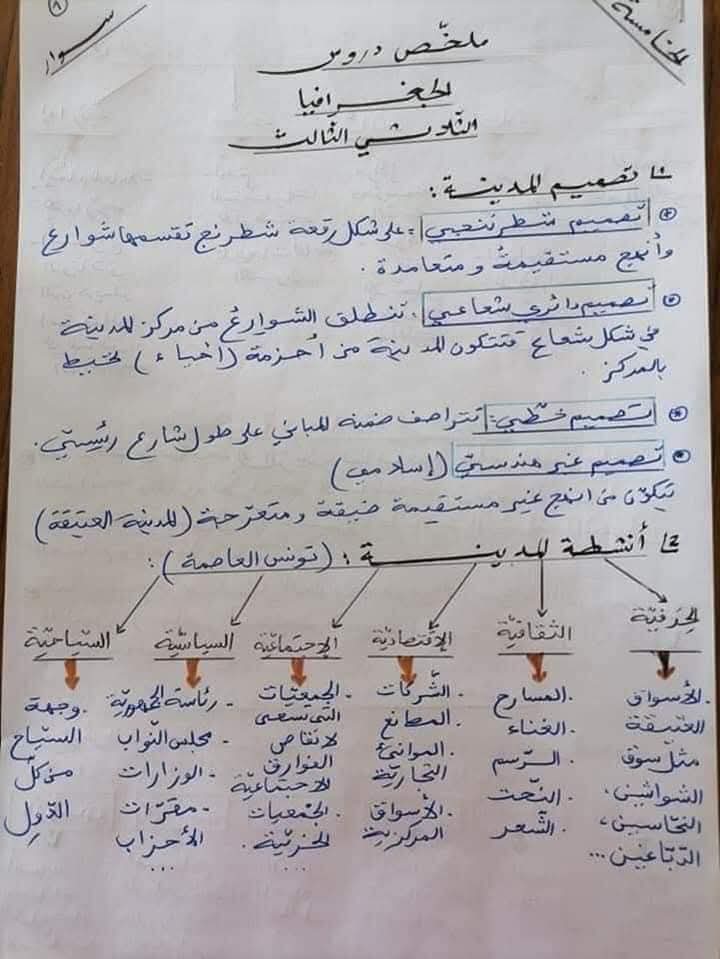 ٨
الخامسة
سوار
ملخّص دروس
الجغرافيا
الثلاثي الثالث
1/ تصميم المدينة :
تصميم شطرنجي : على شكل رقعة شطرنج تقسمها شوارع
وأنهج مستقيمة و متعامدة .
تصميم دائري شعاعي : تنطلق الشوارع من مركز المدينة
في شكل شعاع فتتكون المدينة من أحزمة (أحياء) تحيط
بالمركز .
تصميم خطّي : تتراصف ضمنه المباني على طول شارع رئيسي .
تصميم غير هندسي (إسلامي)
يتكوّن من أنهج غير مستقيمة ضيقة و متعرّجة (المدينة العتيقة)
2/ أنشطة المدينة : (تونس العاصمة) :
الحِرَفيّة
الأسواق
العتيقة
مثل سوق
الشواشين،
النحّاسين،
الدبّاغين...
الثقافيّة
. المسارح
. الغناء
. الرّسم
. النّحت
. الشّعر
الإقتصاديّة
. الشّركات
. المصانع
. الموانئ
التجاريّة
. الأسواق
المركزية
الإجتماعيّة
. الجمعيّات
التي تسعى
لانقاص
الفوارق
الاجتماعيّة
. الجمعيات
الخيريّة .
...
السياسيّة
- رئاسة الجمهوريّة
- مجلس النّواب
- الوزارات
- مقرّات
الأحزاب
...
السّياحيّة
. وجهة
السيّاح
من كلّ
الدّول